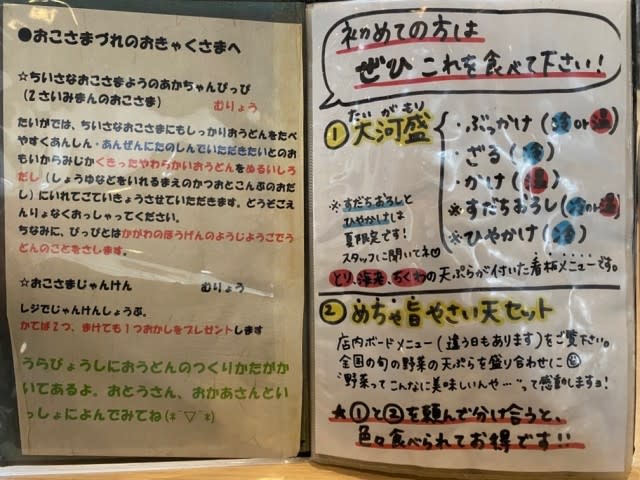 ●おこさまづれのおきゃくさまへ
☆ちいさなおこさまようのあかちゃんぴっぴ
（2さいみまんのおこさま） むりょう
たいがでは、ちいさなおこさまにもしっかりおうどんをたべ
やすくあんしん・あんぜんにたのしんでいただきたいとのお
もいからみじかくきったやわらかいおうどんをぬるいしろ
だし（しょうゆなどをいれるまえのかつおとこんぶのおだ
し）にいれてごていきょうさせていただきます。どうぞごえ
んりょなくおっしゃってください。
ちなみに、ぴっぴとはかがわのほうげんのようじようごでう
どんのことをさします。
☆おこさまじゃんけん むりょう
レジでじゃんけんしょうぶ。
かてば2つ、まけても1つおかしをプレゼントします
うらびょうしにおうどんのつくりかたがか
いてあるよ。おとうさん、おかあさんとい
っしょによんでみてね(*¯▽¯*)
初めての方は
ぜひ これを食べて下さい！
①大河盛
たいがもり
・ぶっかけ（冷or温）
・ざる（冷）
・かけ（温）
※すだちおろし（冷or温）
※ひやかけ（冷）
※すだちおろしと
ひやかけは
夏限定です！
スタッフに聞いてネ♡
とり、海老、ちくわの天ぷらが付いた看板メニューです。
②めちゃ旨やさい天セット
店内ボードメニュー（違う日もあります）をご覧下さい。
全国の旬の野菜の天ぷらを盛り合わせに
"野菜ってこんなに美味しいんや…"って感動しますョ！
★①と②を頼んで分け合うと、
色々食べられてお得です!!